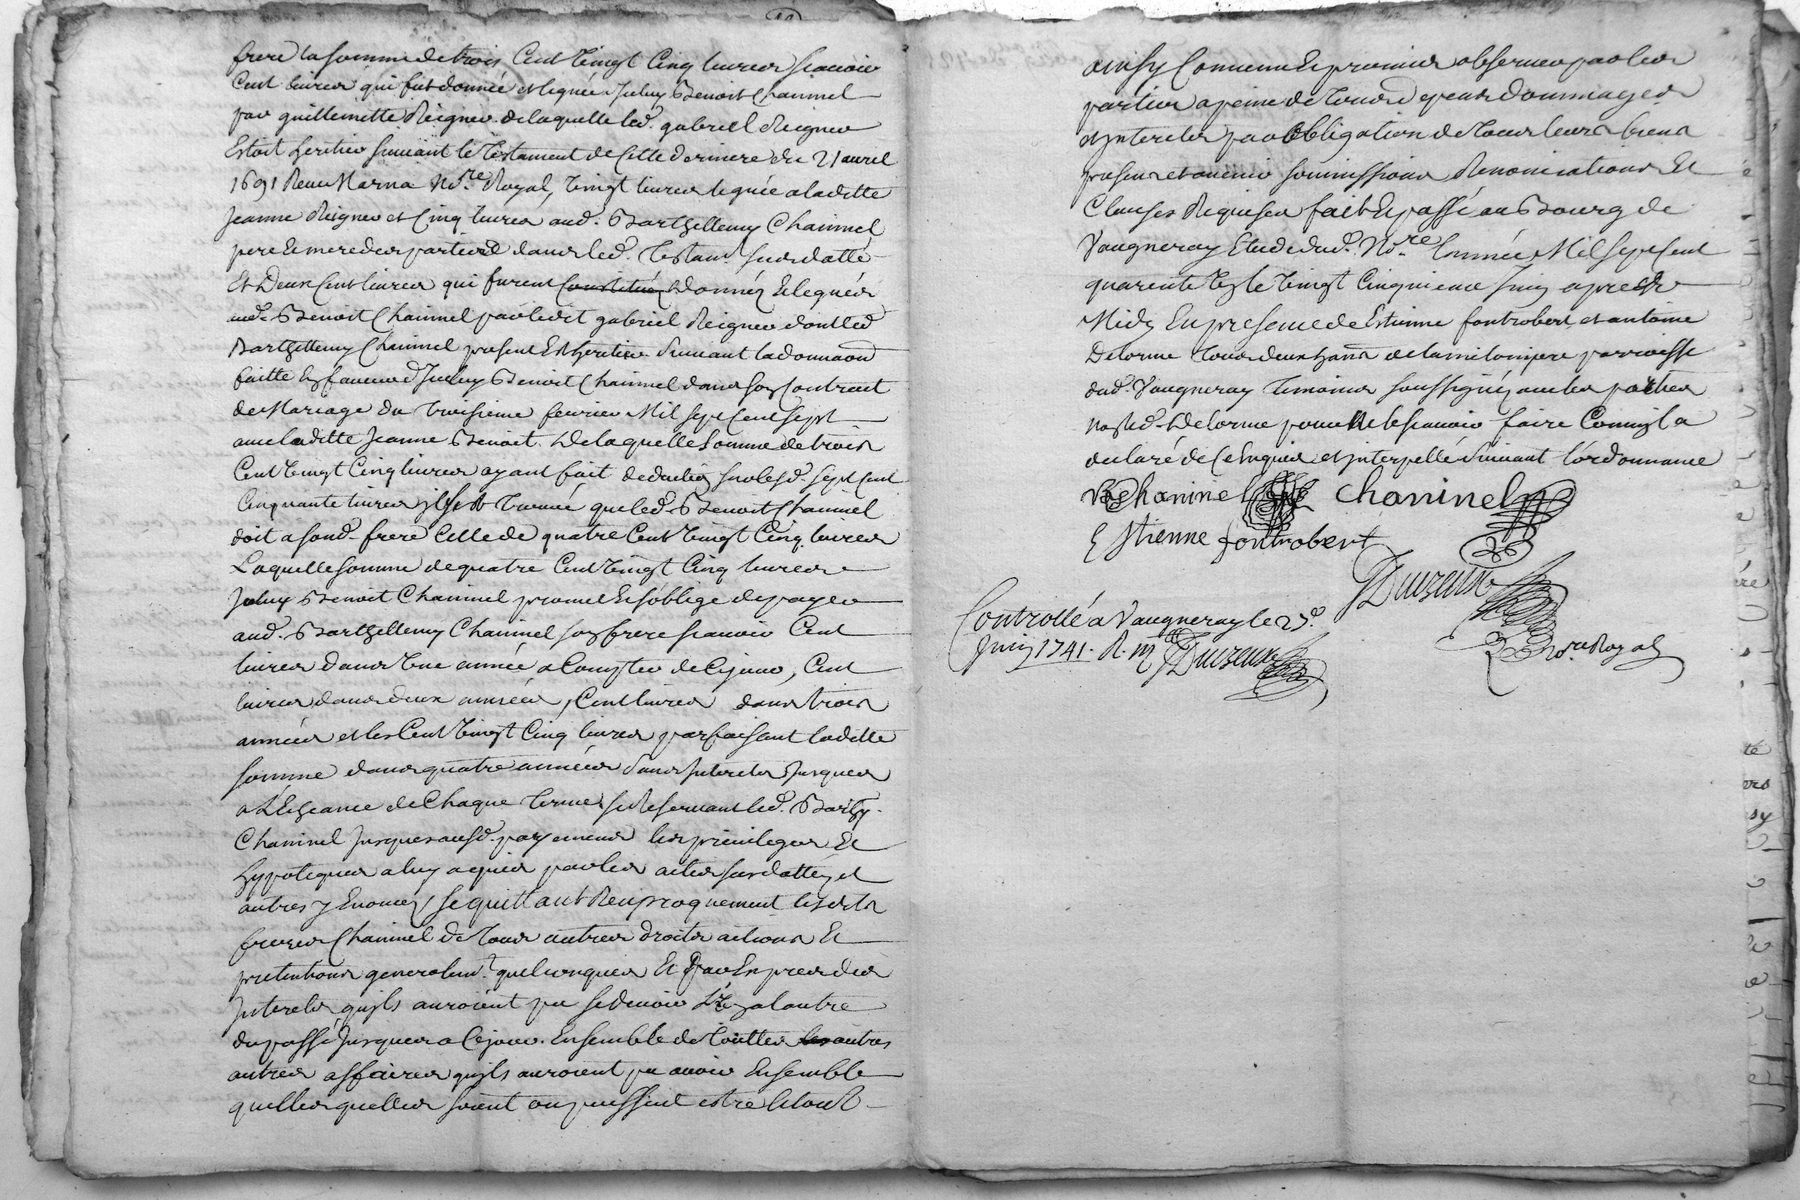 frere la somme de trois Cent Vingt Cinq livres scavoir
Cent livres qui fut donnée et leguée Jceluy Benoit Chaninel
par guillemette Reignier de laquelle led. gabriel Reignier
Estoit heritier suivant le Testament de Cette derniere du 21 avril
1691 Receu Marna No.re Royal, Vingt livres leguée a laditte
Jeanne Reignier et Cinq livres aud. Barthellemy Chaninel
pere et mere des parties dans led. Testam. susdatté
Et Deux Cent livres qui furent Constituéz donnéz et leguéés
aud. Benoit Chaninel par ledit gabriel Reignier dont led
Barthellemy Chaninel present Est heritier suivant la donnaon
faitte En faveur d'Jceluy Benoit Chaninel dans son Contract
de Mariage du troisieme fevrier Mil sept Cent sept
avec laditte Jeanne Benoit. De laquelle somme de trois
Cent Vingt Cinq livres ayant fait deduction sur lesd. sept Cent
Cinquante livres il s'est trouvé que led. Benoit Chaninel
doit a sond. frere Celle de quatre Cent Vingt Cinq livres
Laquelle somme de quatre Cent Vingt Cinq livres
Jceluy Benoit Chaninel promet Et s'oblige de payer
aud. Barthellemy Chaninel son frere scavoir Cent
livres dans Une année a Compter de Ce jour, Cent
livres dans deux années, Cent livres dans trois
années et les Cent Vingt Cinq livres parfaisant laditte
somme dans quatre années sans Jnterets Jusques
a L'Echeance de Chaque terme se Reservant led. Barthy.
Chaninel Jusques ausd. payemens les privileges Et
hypoteques a luy acquis par les actes susdattéz et
autres y Enoncez, se quittant Reciproquement lesdits
freres Chaninel de Tous autres droits actions Et
pretentions generalem.t quelconques Et par Exprés des
Jnterets qu'ils auroient pu se devoir L'Un a lautre
du passé Jusques a Ce jour. Ensemble de Touttes les autres
autres affaires qu'ils auroient pu avoir Ensemble
quelles quelles soient ou puissent estre le tout
ainsy Convenu Et promis observer par les
parties a peine de Tous depens Dommages
et Jnterets par obligation de Tous leurs biens
presens et avenir soumissions Renonciations Et
Clauses Requises fait Et passé au Bourg de
Vaugneray Etude dud. No.re L'année Mil sept Cent
quarente Un le Vingt Cinquieme Juin apres
Midy En presence de Estienne fontrobert et antoine
Delorme Tous deux de la parroisse
dud. Vaugneray Temoins soussignéz avec les parties
non led. Delorme pour ne le scavoir faire Comm'il a
declaré de Ce Enquis et Jnterpellé suivant l'ordonnance
B Chaninel Chaninel
Estienne fontrobert
Duizeux
No.re Royal
Controllé a Vaugneray le 25.e
Juin 1741. R. Duizeux